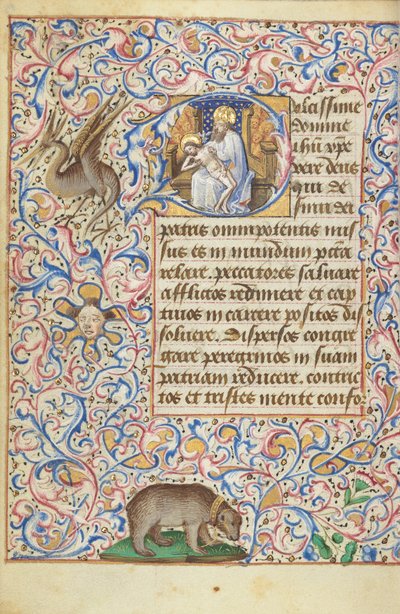 Dulcissime
domine
ihu xpe
vere deus
qui de
sinu dei
patris omnipotentis mis
sus es in mundum pctā
relaxare. peccatores saluare
afflictos redimere et cap
tiuos in carcere positos dis
soluere. Dispersos congre
gare peregrinos in suam
patriam reducere. contri
tos et tristes mente conso